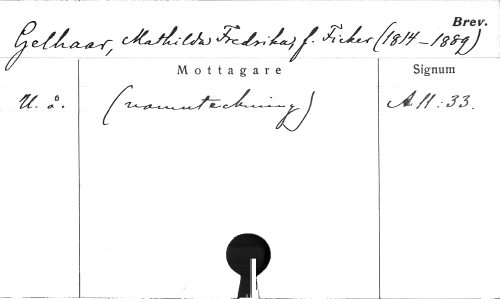 Brev.
Gelhaar, Mathilda Fredrika, f. Ficker (1814–1889)
Mottagare Signum
U. å. (namnteckning) A II:33.